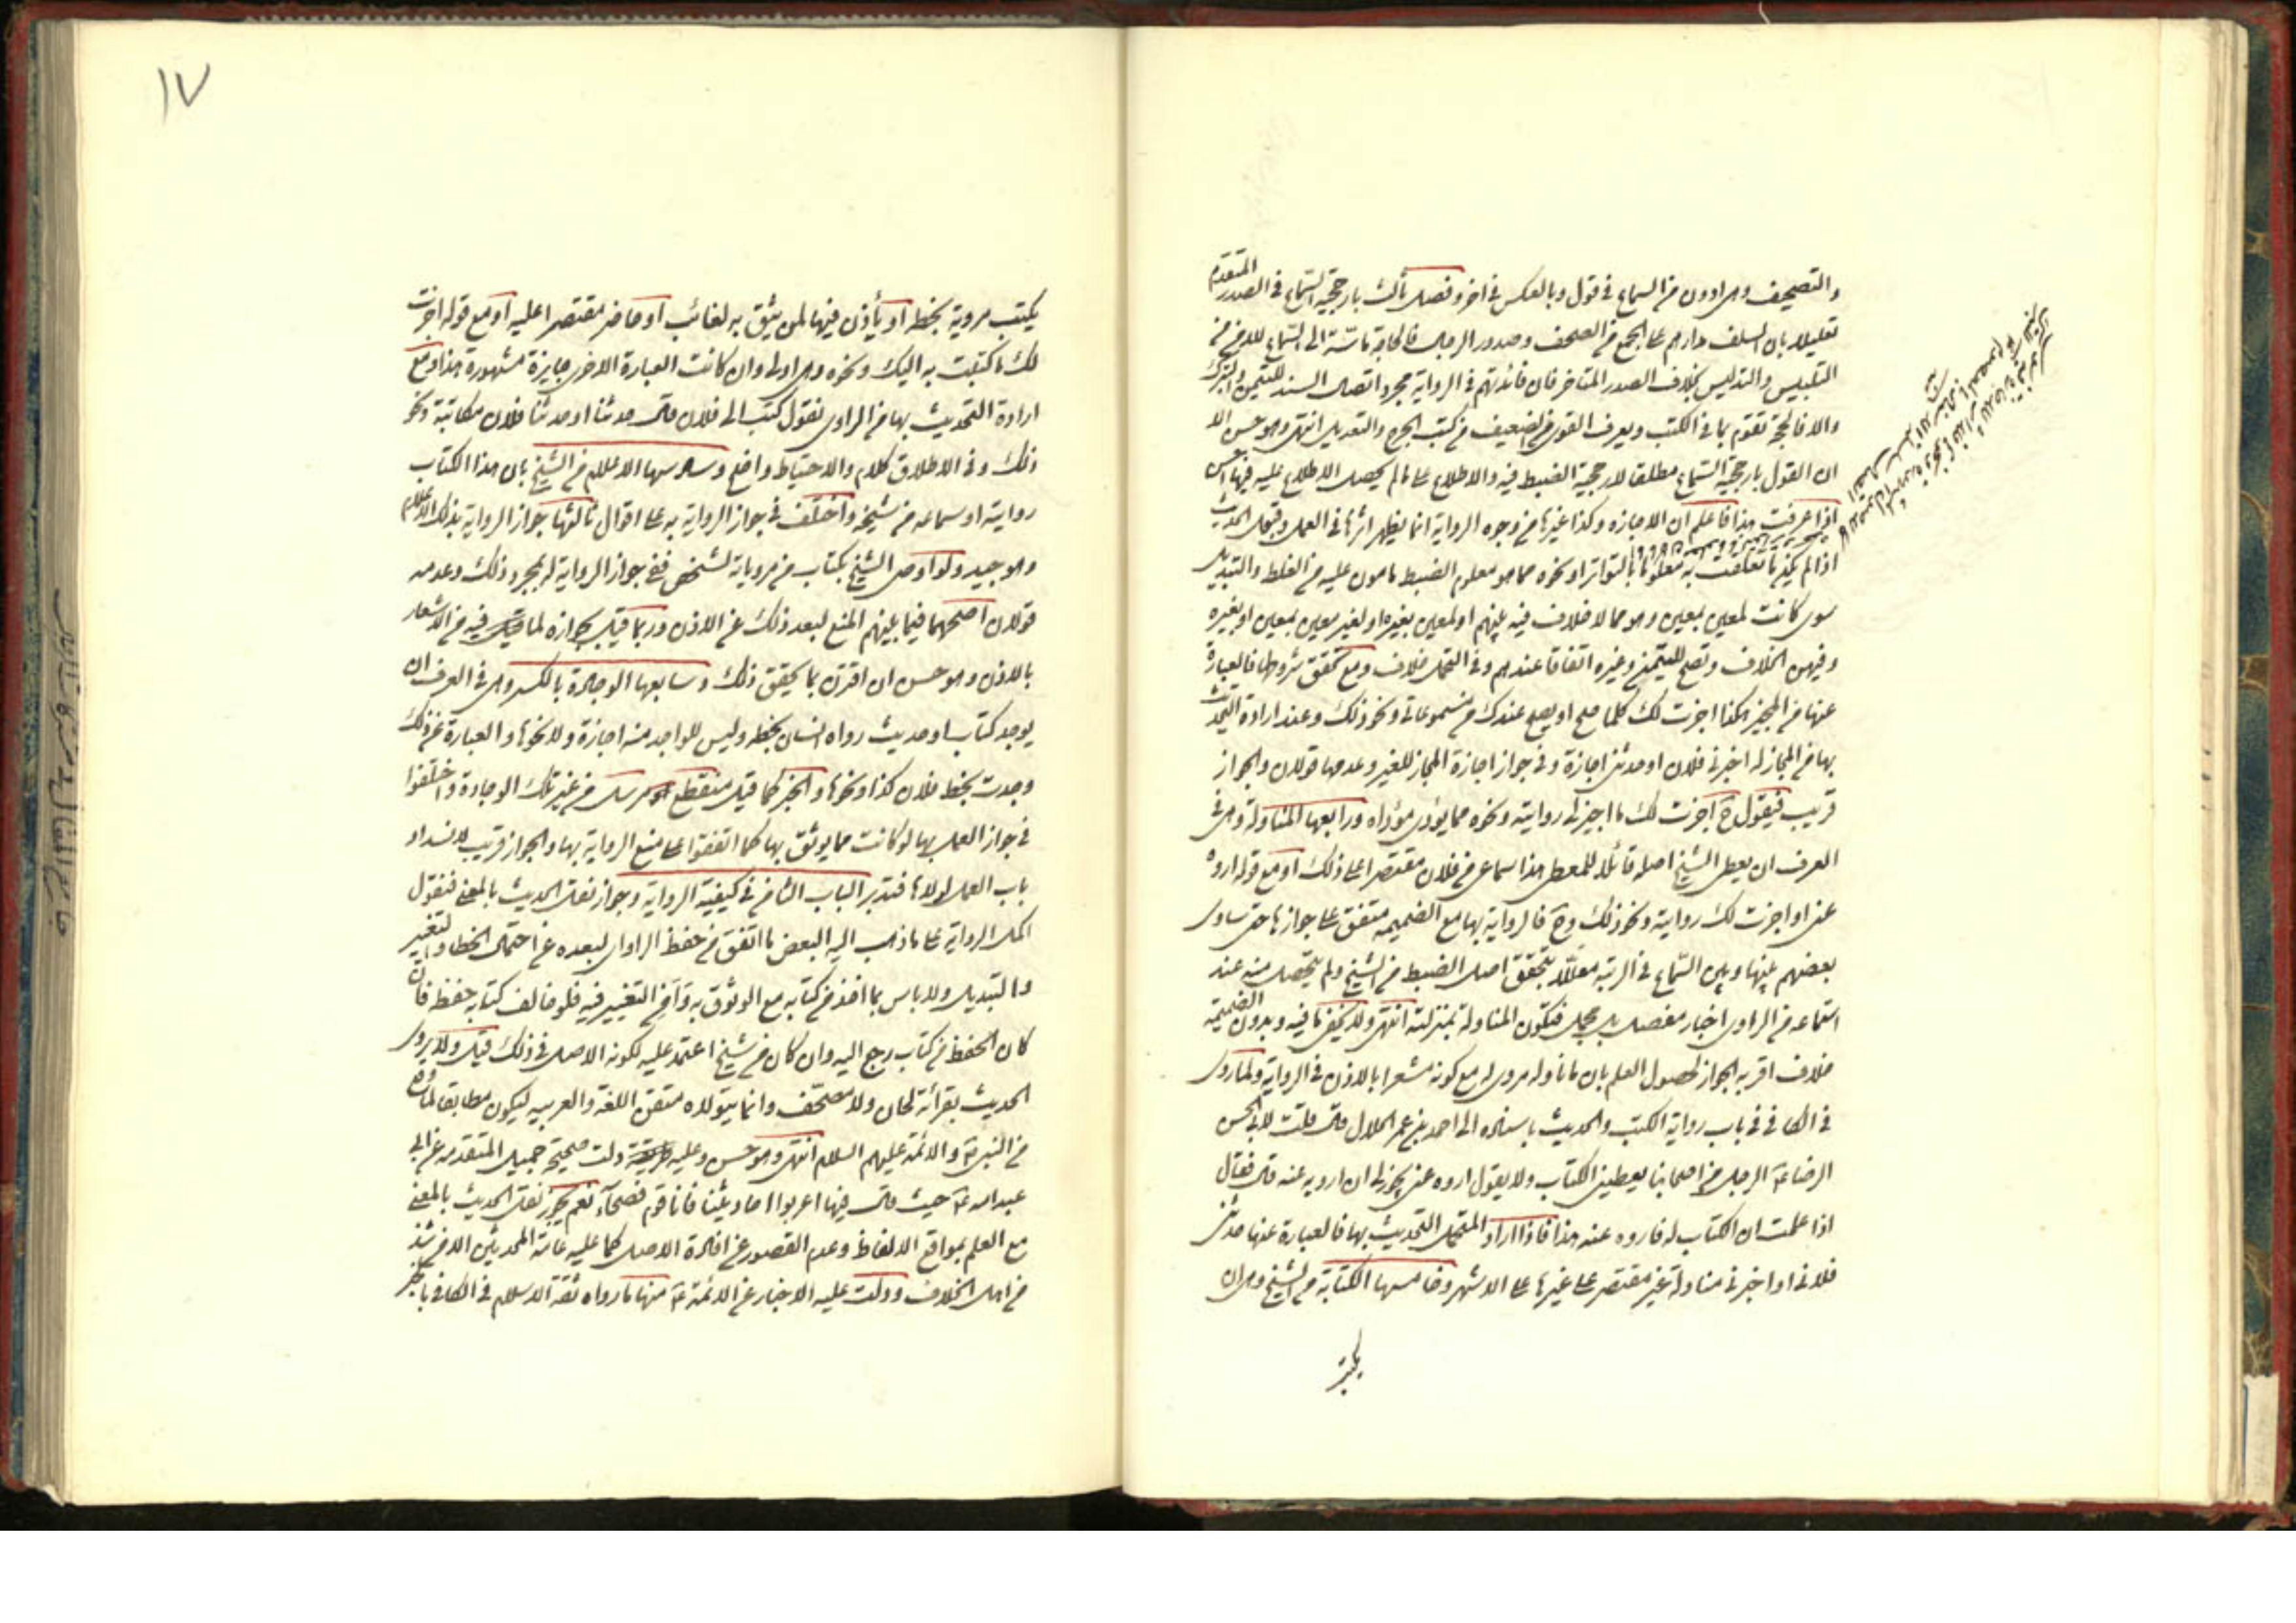 والتصحيف وهى ادون من السماع فى قول وبالعكس فى اخر وفصل ثالث بارجحية السماع فى الصدر المتقدم
تعليلا بان السلف مدارهم على الجمع من الصحف وصدور الرجال فالحاجة ماسة الى السماع للامن من
التلبيس والتدليس بخلاف الصدر المتاخر فان فائدتهم فى الرواية مجرد اتصال السند للتيمن والتبرك
والا فالحجة تقوم بما فى الكتب ويعرف القوى من الضعيف من كتب الجرح والتعديل انتهى وهو حسن الا
ان القول بارجحية السماع مطلقا لارجحية الضبط فيه والاطلاع على ما لم يحصل الاطلاع عليه فيها احسن
اذا عرفت هذا فاعلم ان الاجازه وكذا غيرها من وجوه الرواية انما يظهر اثرها فى العمل وقبول الحديث
اذا لم يكن ما تعلقت به معلوما بالتواتر او نحوه مما هو معلوم الضبط مامون عليه من الغلط والتبديل
سوى كانت لمعين بمعين وهو مما لا خلاف فيه بينهم او لمعين بغيره او لغير معين بمعين او بغيره
وفيهن الخلاف وتصح للمتميز وغيره اتفاقا عندهم وفى التحمل خلاف ومع تحقق شروطها فالعبارة
عنها من المجيز هكذا اجزت لك كلما صح او يصح عندك من مسموعاتى ونحو ذلك وعند ارادة التحديث
بها من المجاز له اخبرنى فلان او حدثنى اجازة وفى جواز اجازة المجاز للغير وعدمها قولان والجواز
قريب فيقول ح اجزت لك ما اجيز لى روايته ونحوه مما يؤدى مؤداه ورابعها المناولة وهى فى
العرف ان يعطى الشيخ اصله قائلا للمعطى هذا سماعى من فلان مقتصرا على ذلك او مع قوله اروه
عنى او اجزت لك روايته ونحو ذلك وح فالرواية بها مع الضميمه متفق على جوازها حتى ساوى
بعضهم بينها وبين السماع فى الرتبه معللا بتحقق اصل الضبط من الشيخ ولم يتحصل منه عند
استماعه من الراوى اخبار مفصل بل مجمل فتكون المناولة بمنزلته انتهى ولا يخفى ما فيه وبدون الضميمه
خلاف اقربه الجواز لحصول العلم بان ما ناوله مروى له مع كونه مشعرا بالاذن فى الرواية ولما روى
فى الكافى فى باب رواية الكتب والحديث باسناده الى احمد بن عمر الحلال قال قلت لابى الحسن
الرضا ع الرجل من اصحابنا يعطينى الكتاب ولا يقول اروه عنى يجوز لى ان ارويه عنه قال فقال
اذا علمت ان الكتاب له فاروه عنه هذا فاذا اراد المتحمل التحديث بها فالعبارة عنها حدثنى
فلان او اخبرنى مناولة غير مقتصر على غيرها على الاشهر وخامسها الكتابة من الشيخ وهى ان
يكتب
١٧
يكتب مرويه بخطه او يأذن فيها لمن يثق به لغائب او حاضر مقتصرا عليه او مع قوله اجزت
لك ما كتبت به اليك ونحوه وهى اولى وان كانت العبارة الاخرى جايزة مشهورة هذا ومع
ارادة التحديث بها من الراوى نقول كتب الى فلان قال حدثنا او حدثنا فلان مكاتبة ونحو
ذلك وفى الاطلاق كلام والاحتياط واضح وسادسها الاعلام من الشيخ بان هذا الكتاب
روايته او سماعه من شيخه واختلف فى جواز الرواية به على اقوال ثالثها جواز الرواية بذلك الاعلام
وهو جيد ولو اوصى الشيخ بكتاب من مروياته لشخص ففى جواز الرواية له بمجرد ذلك وعدمه
قولان اصحهما فيما بينهم المنع لبعد ذلك عن الاذن وربما قيل بجوازه لما قيل فيه من الاشعار
بالاذن وهو حسن ان اقترن بما يحقق ذلك وسابعها الوجادة بالكسر وهى فى العرف ان
يوجد كتاب او حديث رواه انسان بخطه وليس للواجد منه اجازة ولا نحوها والعبارة عن ذلك
وجدت بخط فلان كذا ونحوها والخبر كما قيل منقطع مرسل من غير تلك الوجادة واختلفوا
فى جواز العمل بها لو كانت مما يوثق بها كما اتفقوا على منع الرواية بها والجواز قريب لانسداد
باب العمل لولاها فتدبر الباب الثامن فى كيفية الرواية وجواز نقل الحديث بالمعنى فنقول
اكمل الرواية على ما ذهب اليه البعض ما اتفق من حفظ الراوى لبعده عن احتمال الخطا والتغيير
والتبديل ولا باس بما اخذ من كتابه مع الوثوق به وامن التغيير فيه فلو خالف كتابه حفظه فان
كان الحفظ من كتاب رجح اليه وان كان من شيخ اعتمد عليه لكونه الاصل فى ذلك قيل ولا يروى
الحديث بقرائة لحان ولا مصحف وانما يتولاه متقن اللغة والعربيه ليكون مطابقا لما رواه
من النبى ص والائمة عليهم السلام انتهى وهو حسن وعليه دلت صحيحة جميل المتقدمه عن ابى
عبد الله ع حيث قال فيها اعربوا احاديثنا فانا قوم فصحاء نعم يجوز نقل الحديث بالمعنى
مع العلم بمواقع الالفاظ وعدم القصور عن افادة الاصل كما عليه عامة المحدثين الا من شذ
من اهل الخلاف ودلت عليه الاخبار عن الائمة ع منها ما رواه ثقة الاسلام فى الكافى